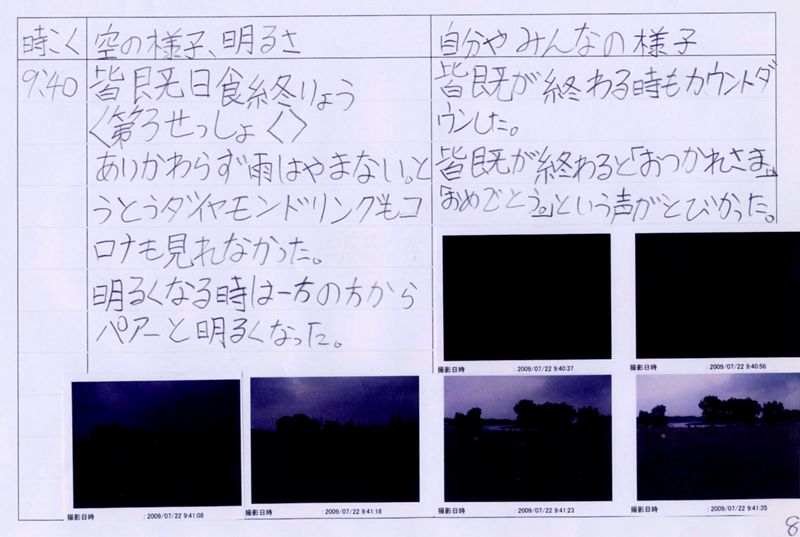 時こく
空の様子、明るさ
自分やみんなの様子
9:40
皆既日食終りょう
〈第3せっしょく〉
あいかわらず雨はやまない。と
うとうダイヤモンドリングもコ
ロナも見れなかった。
明るくなる時は一方の方から
パアーと明るくなった。
皆既が終わる時もカウントダ
ウンした。
皆既が終わると「おつかれさま」
「おめでとう。」という声がとびかった。
撮影日時 : 2009/07/22 9:40:37
撮影日時 : 2009/07/22 9:40:56
撮影日時 : 2009/07/22 9:41:08
撮影日時 : 2009/07/22 9:41:18
撮影日時 : 2009/07/22 9:41:23
撮影日時 : 2009/07/22 9:41:35
8